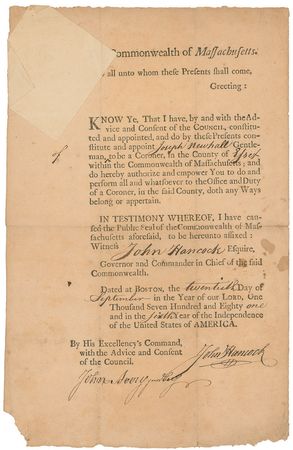 Commonwealth of Massachusetts.
all unto whom these Presents shall come,
Greeting:
KNOW Ye, That I have, by and with the Ad-
vice and Consent of the COUNCIL, constitu-
ted and appointed, and do by these Presents con-
stitute and appoint Joseph Newhall Gentle-
man, to be a Coroner, in the County of Essex
within the Commonwealth of Massachusetts; and
do hereby authorize and empower You to do and
perform all and whatsoever to the Office and Duty
of a Coroner, in the said County, doth any Ways
belong or appertain.
IN TESTIMONY WHEREOF, I have cau-
sed the Public Seal of the Commonwealth of Mas-
sachusetts aforesaid, to be hereunto affixed:
Witness John Hancock Esquire,
Governor and Commander in Chief of the said
Commonwealth.
Dated at BOSTON, the twentieth Day of
September in the Year of our LORD, One
Thousand Seven Hundred and Eighty one
and in the sixth Year of the Independence
of the United States of AMERICA.
By His Excellency's Command,
with the Advice and Consent
of the Council.
John Hancock
John Avery